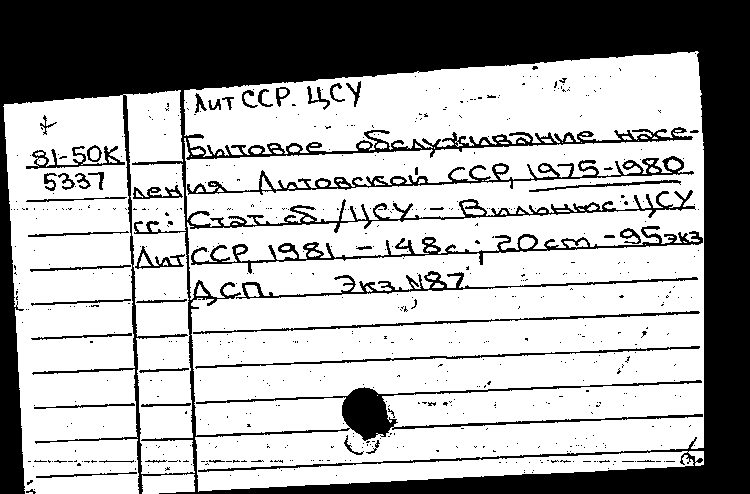 Лит ССР. ЦСУ
81-50К
5337
Бытовое обслуживание насе-
ления Литовской ССР, 1975-1980
гг.: Стат. сб. /ЦСУ. - Вильнюс: ЦСУ
Лит ССР, 1981. - 148с.; 20 cm. - 95 экз
ДСП. Экз. N87.